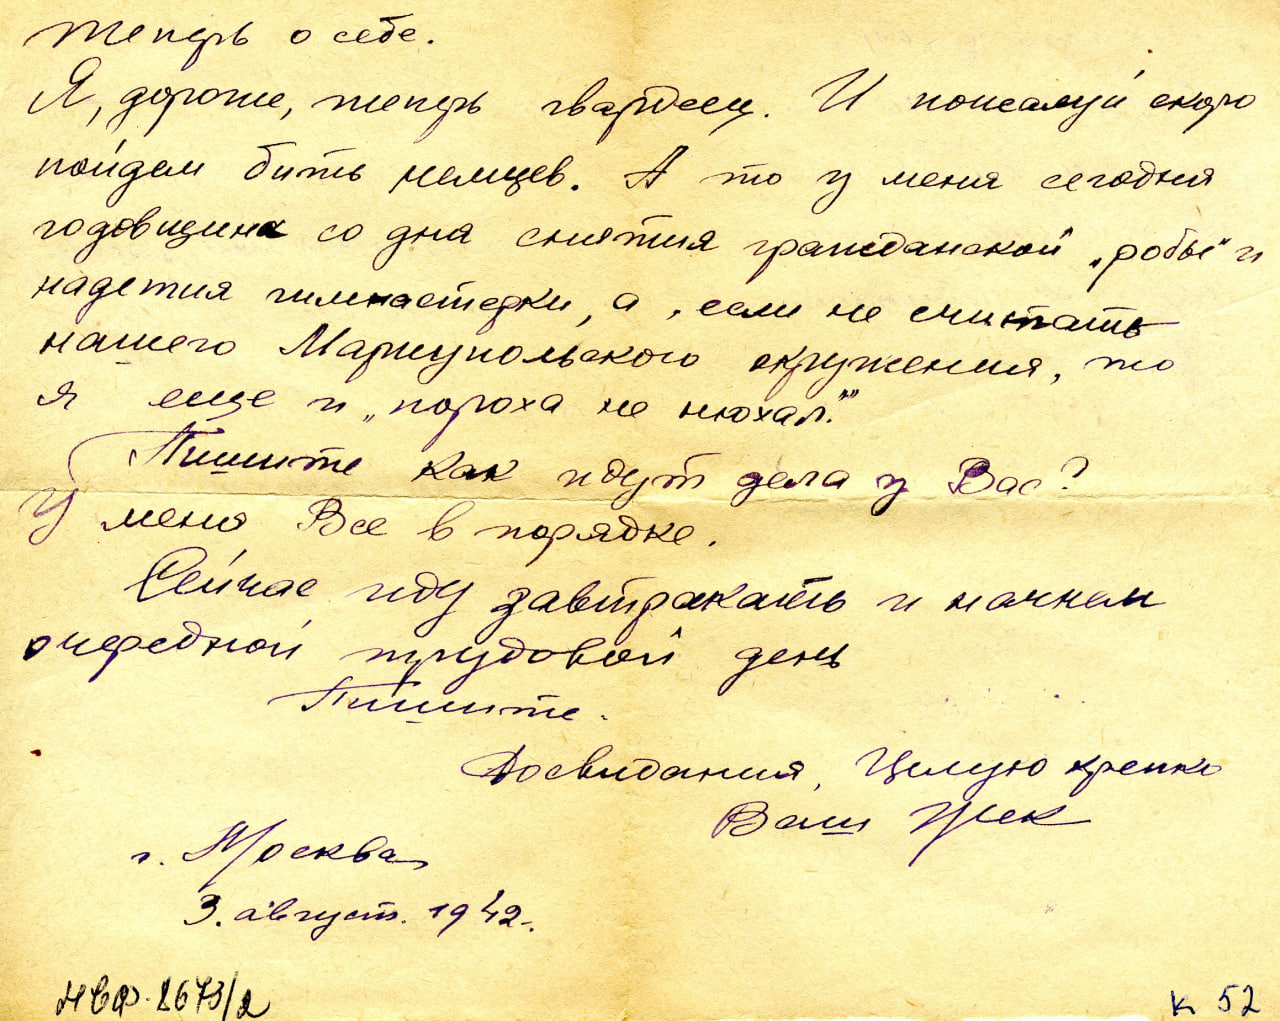 Теперь о себе.
Я, дорогие, теперь гвардеец. И пожалуй скоро
пойдем бить немцев. А то у меня сегодня
годовщина со дня снятия гражданской „робы" и
надетия гимнастерки, а, если не считать
нашего Мариупольского окружения, то
я еще и „пороха не нюхал".
Пишите как идут дела у Вас?
У меня Все в порядке.
Сейчас иду завтракать и начнем
очередной трудовой день
Пишите.
Досвидания, Целую крепко
Ваш Жек
г. Москва
3. август. 1942.
НВФ. 2673/2
К 52